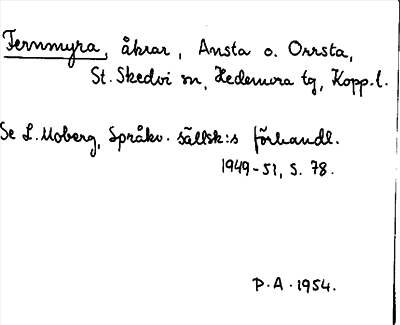 Fernmyra, åkrar, Ansta o. Orrsta,
St. Skedvi sn, Hedemora tg, Kopp. l.
Se L. Moberg, Språkv. sällsk:s förhandl.
1949-51, s. 78.
P. A. 1954.